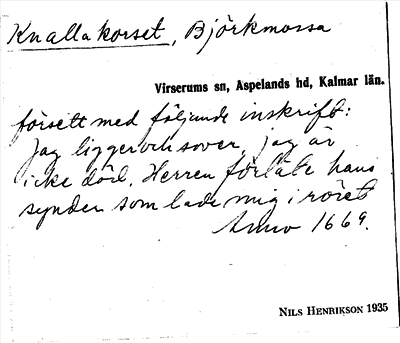 Knallakorset, Björkmossa
Virserums sn, Aspelands hd, Kalmar län.
försett med följande inskrift:
Jag ligger och sover, jag är
icke död. Herren förlåte hans
synder som lade mig i röret
Anno 1669.
NILS HENRIKSON 1935